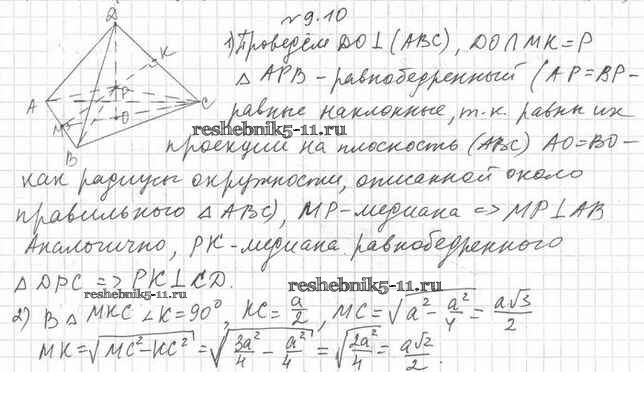 № 9.10
D
K
P
A
C
O
M
B
1) Проведём DO⊥(ABC), DO∩MK=P
△ APB – равнобедренный (AP=BP–
равные наклонные, т.к. равны их
reshebnik5-11.ru
проекции на плоскость (ABC) AO=BO–
как радиусы окружности, описанной около
правильного △ ABC), MP–медиана => MP⊥AB
Аналогично, PK–медиана равнобедренного
△ DPC => PK⊥CD.
reshebnik5-11.ru
2) В △ MKC ∠K=90°, KC=a/2, MC=√(a²−a²/4)=a√3/2
MK=√(MC²−KC²)=√(3a²/4−a²/4)=√(2a²/4)=a√2/2.